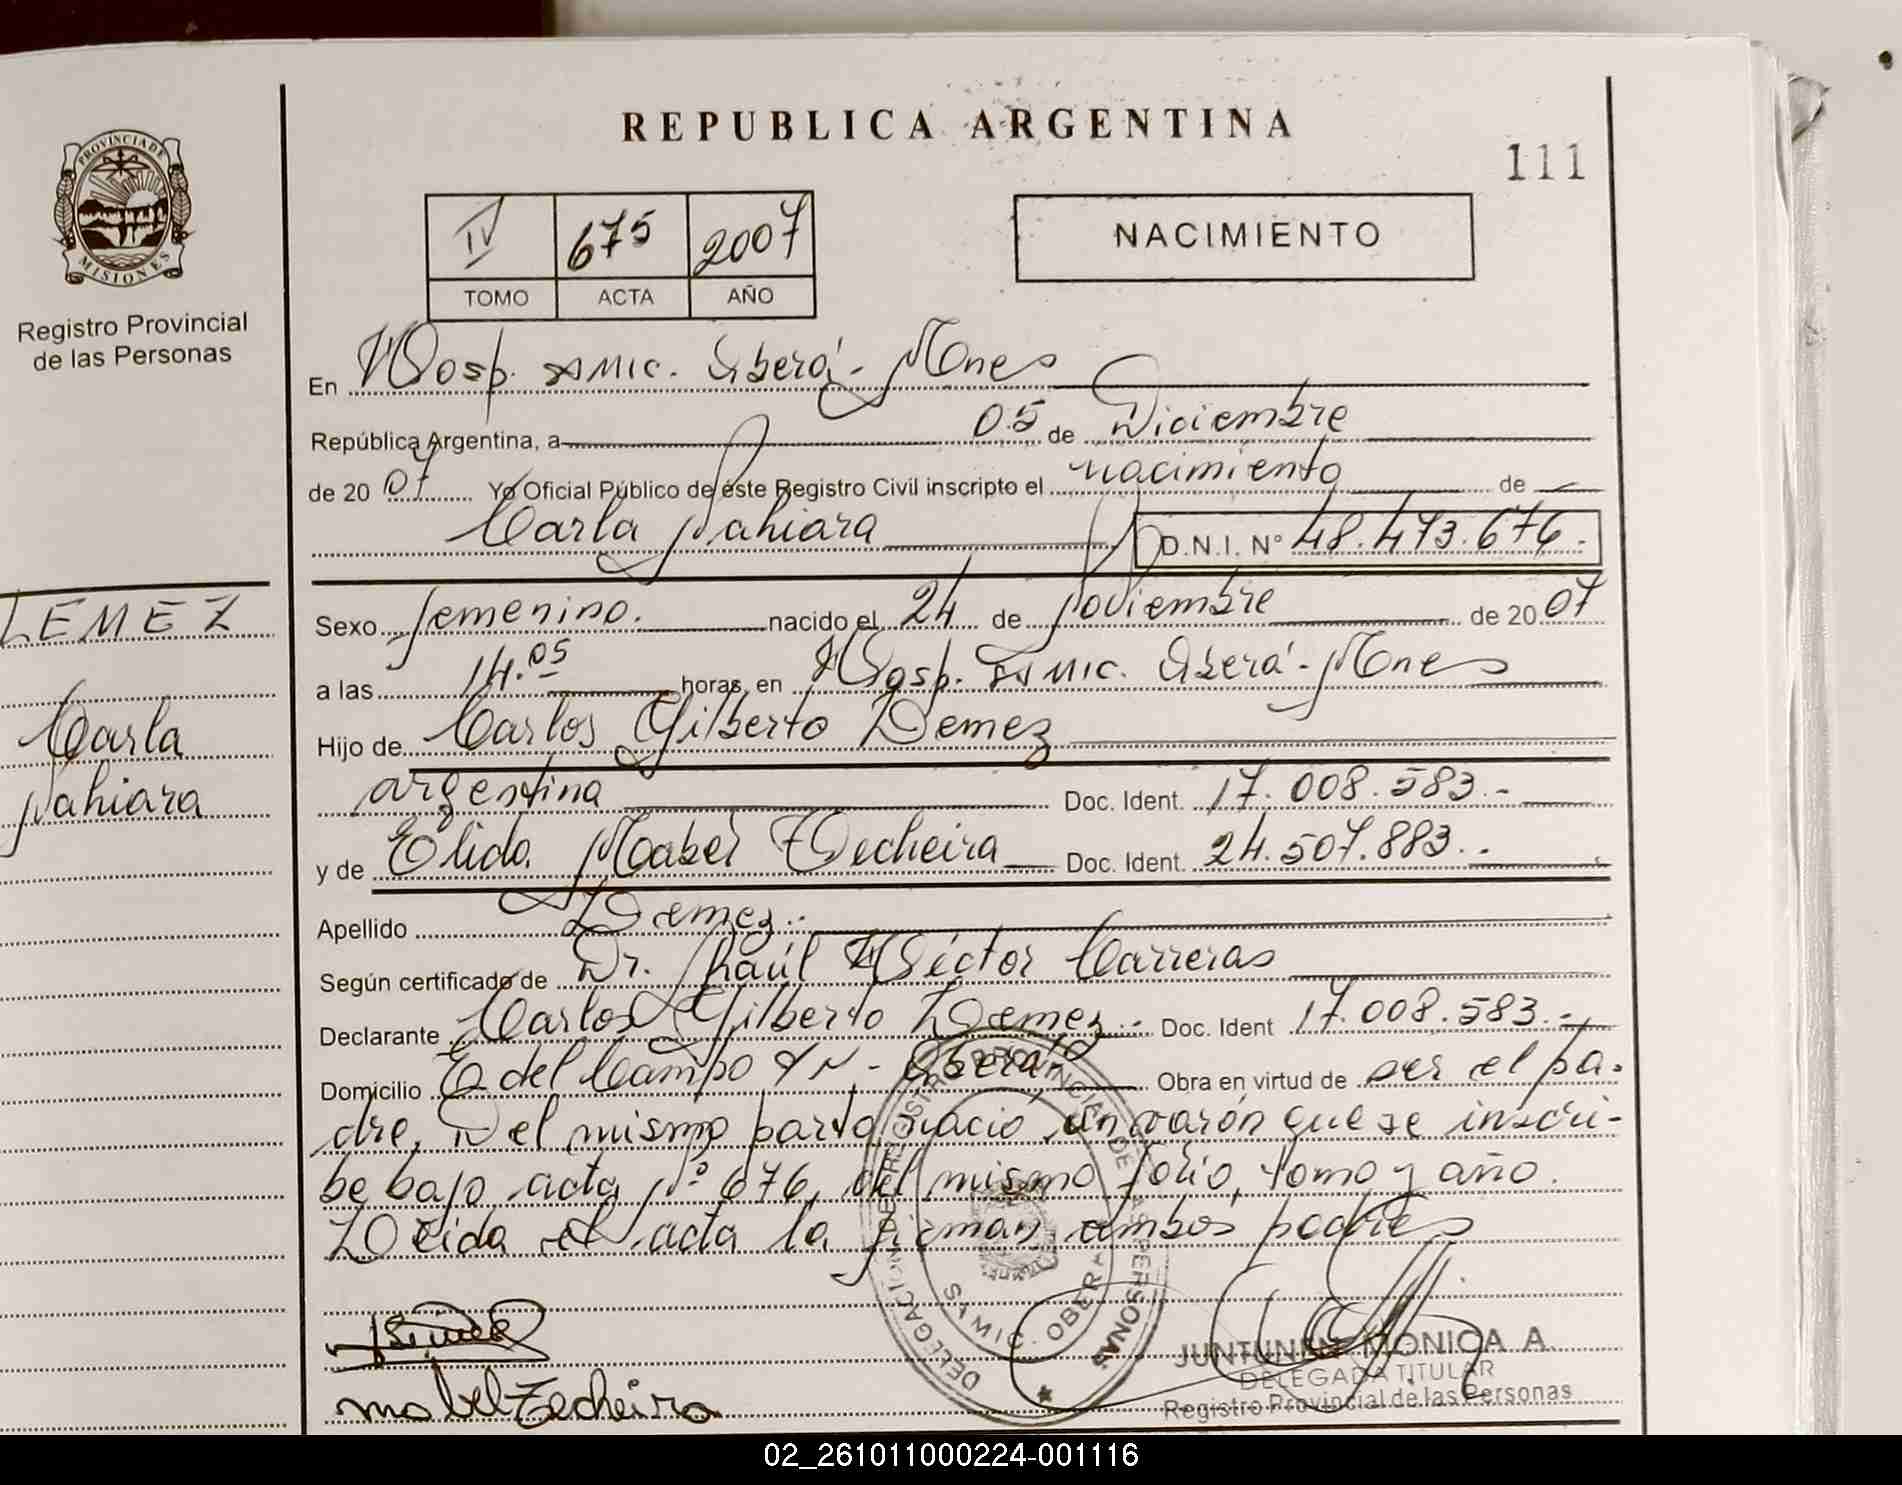 REPUBLICA ARGENTINA
111
PROVINCIA DE
MISIONES
Registro Provincial
de las Personas
IV 675 2007
TOMO ACTA AÑO
NACIMIENTO
En Hosp. SAMIC. Oberá - Mnes
República Argentina, a 05 de Diciembre
de 20 07 Yo Oficial Público de este Registro Civil inscripto el nacimiento de
Carla Nahiara D.N.I. N° 48.473.676.-
LEMEZ
Carla
Nahiara
Sexo femenino. nacido el 24 de Noviembre de 20 07
a las 14.05 horas, en Hosp. SAMIC. Oberá - Mnes
Hijo de Carlos Gilberto Lemez
argentina Doc. Ident. 17.008.583.-
y de Elida Mabel Techeira Doc. Ident. 24.507.883.-
Apellido Lemez.-
Según certificado de Dr. Raúl Héctor Carreras
Declarante Carlos Gilberto Lemez.- Doc. Ident 17.008.583.-
Domicilio E del Campo S/N - Oberá.- Obra en virtud de ser el pa-
dre. Del mismo parto nació un varón que se inscri-
be bajo acta N° 676, del mismo folio, tomo y año.
Leida el acta la firman ambos padres
DELEGACION DE REGISTRO PROVINCIAL DE LAS PERSONAS
SAMIC. OBERA
mabel Techeira
JUNTUNEN MONICA A.
DELEGADA TITULAR
Registro Provincial de las Personas
02_261011000224-001116